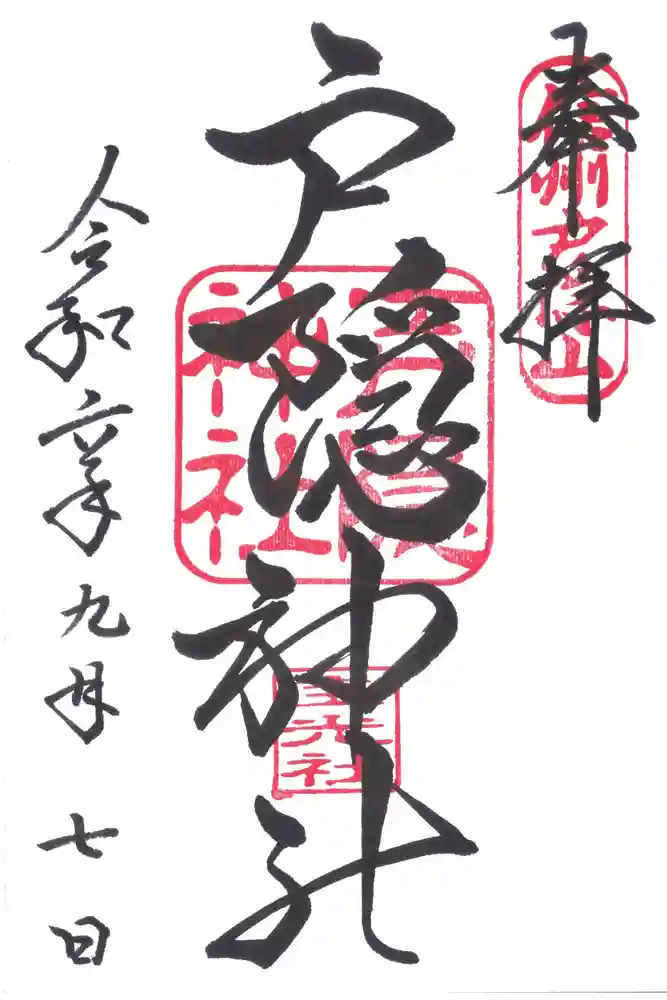 奉拝
信州戸隠山
戸隠神社
戸隠神社
宝光社
令和六年九月七日